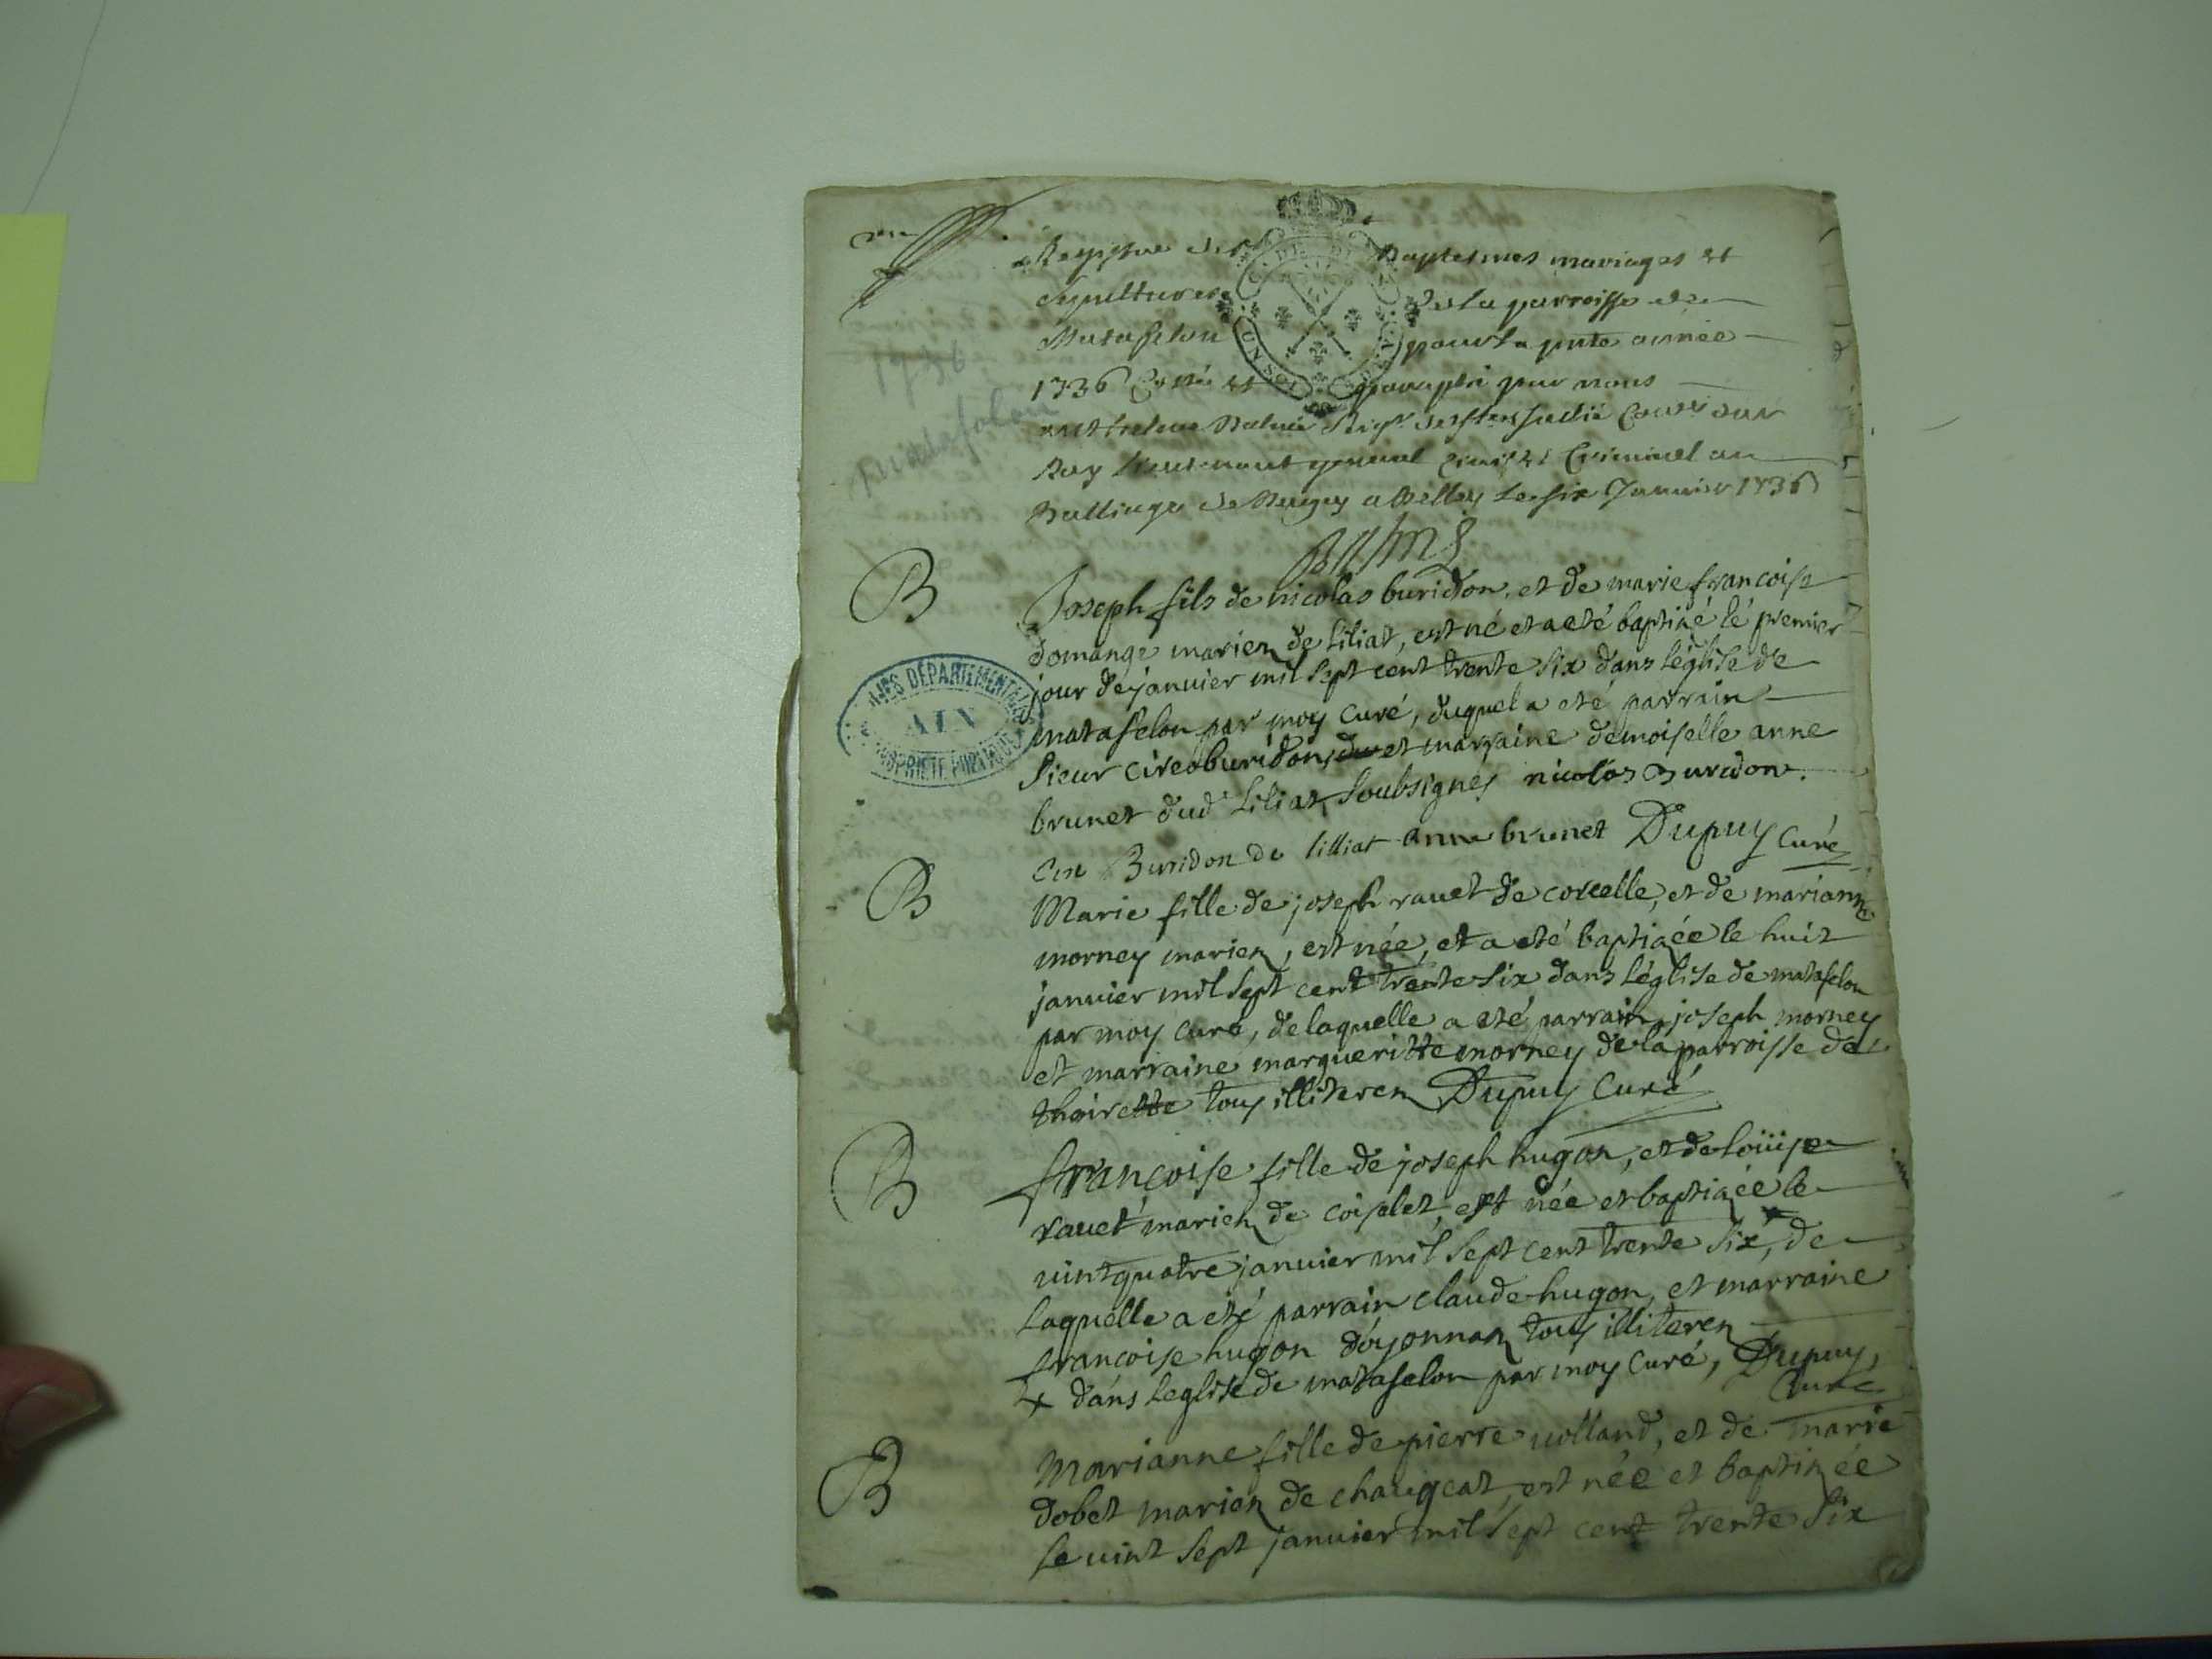 Registre des Baptesmes mariages et
sepultures de la parroisse de
Matafelon pour la pnte année
1736 Cotté et paraphé par nous
Balme Seigr
Roy lieutenant general civil et Criminel au
Balliage de Bugey a Belley le six Janvier 1736
1736
matafelon
B
Joseph fils de nicolas buridon, et de marie francoise
domange mariez de siliat, est né et a eté baptizé le premier
jour de janvier mil sept cent trente six dans léglise de
matafelon par moy curé, duquel a eté parrain
sieur cire buridon, et marraine demoiselle anne
brunet dud siliat soubsignés nicolas Buridon.
cire Buridon de silliat anne brunet Dupuy curé
ARCHIVES DÉPARTEMENTALES
AIN
PROPRIÉTÉ PUBLIQUE
B
Marie fille de joseph ravet de corcelle, et de marianne
morney mariez, est née, et a eté baptizée le huit
janvier mil sept cent trente six dans léglise de matafelon
par moy curé, de laquelle a eté parrain joseph morney
et marraine margueritte morney de la parroisse de
thoirette tous illiterez Dupuy Curé
B
francoise fille de joseph hugon, et de loüise
ravet mariez de coiselet, est née et baptizée le
vint quatre janvier mil sept cent trente six, de
laquelle a eté parrain claude hugon, et marraine
francoise hugon d'oyonnaz tous illiterez
+ dans leglise de matafelon par moy curé, Dupuy,
Curé
B
Marianne fille de pierre volland, et de marie
dobet mariez de chaugeat, est née et baptizée
le vint sept janvier mil sept cent trente six